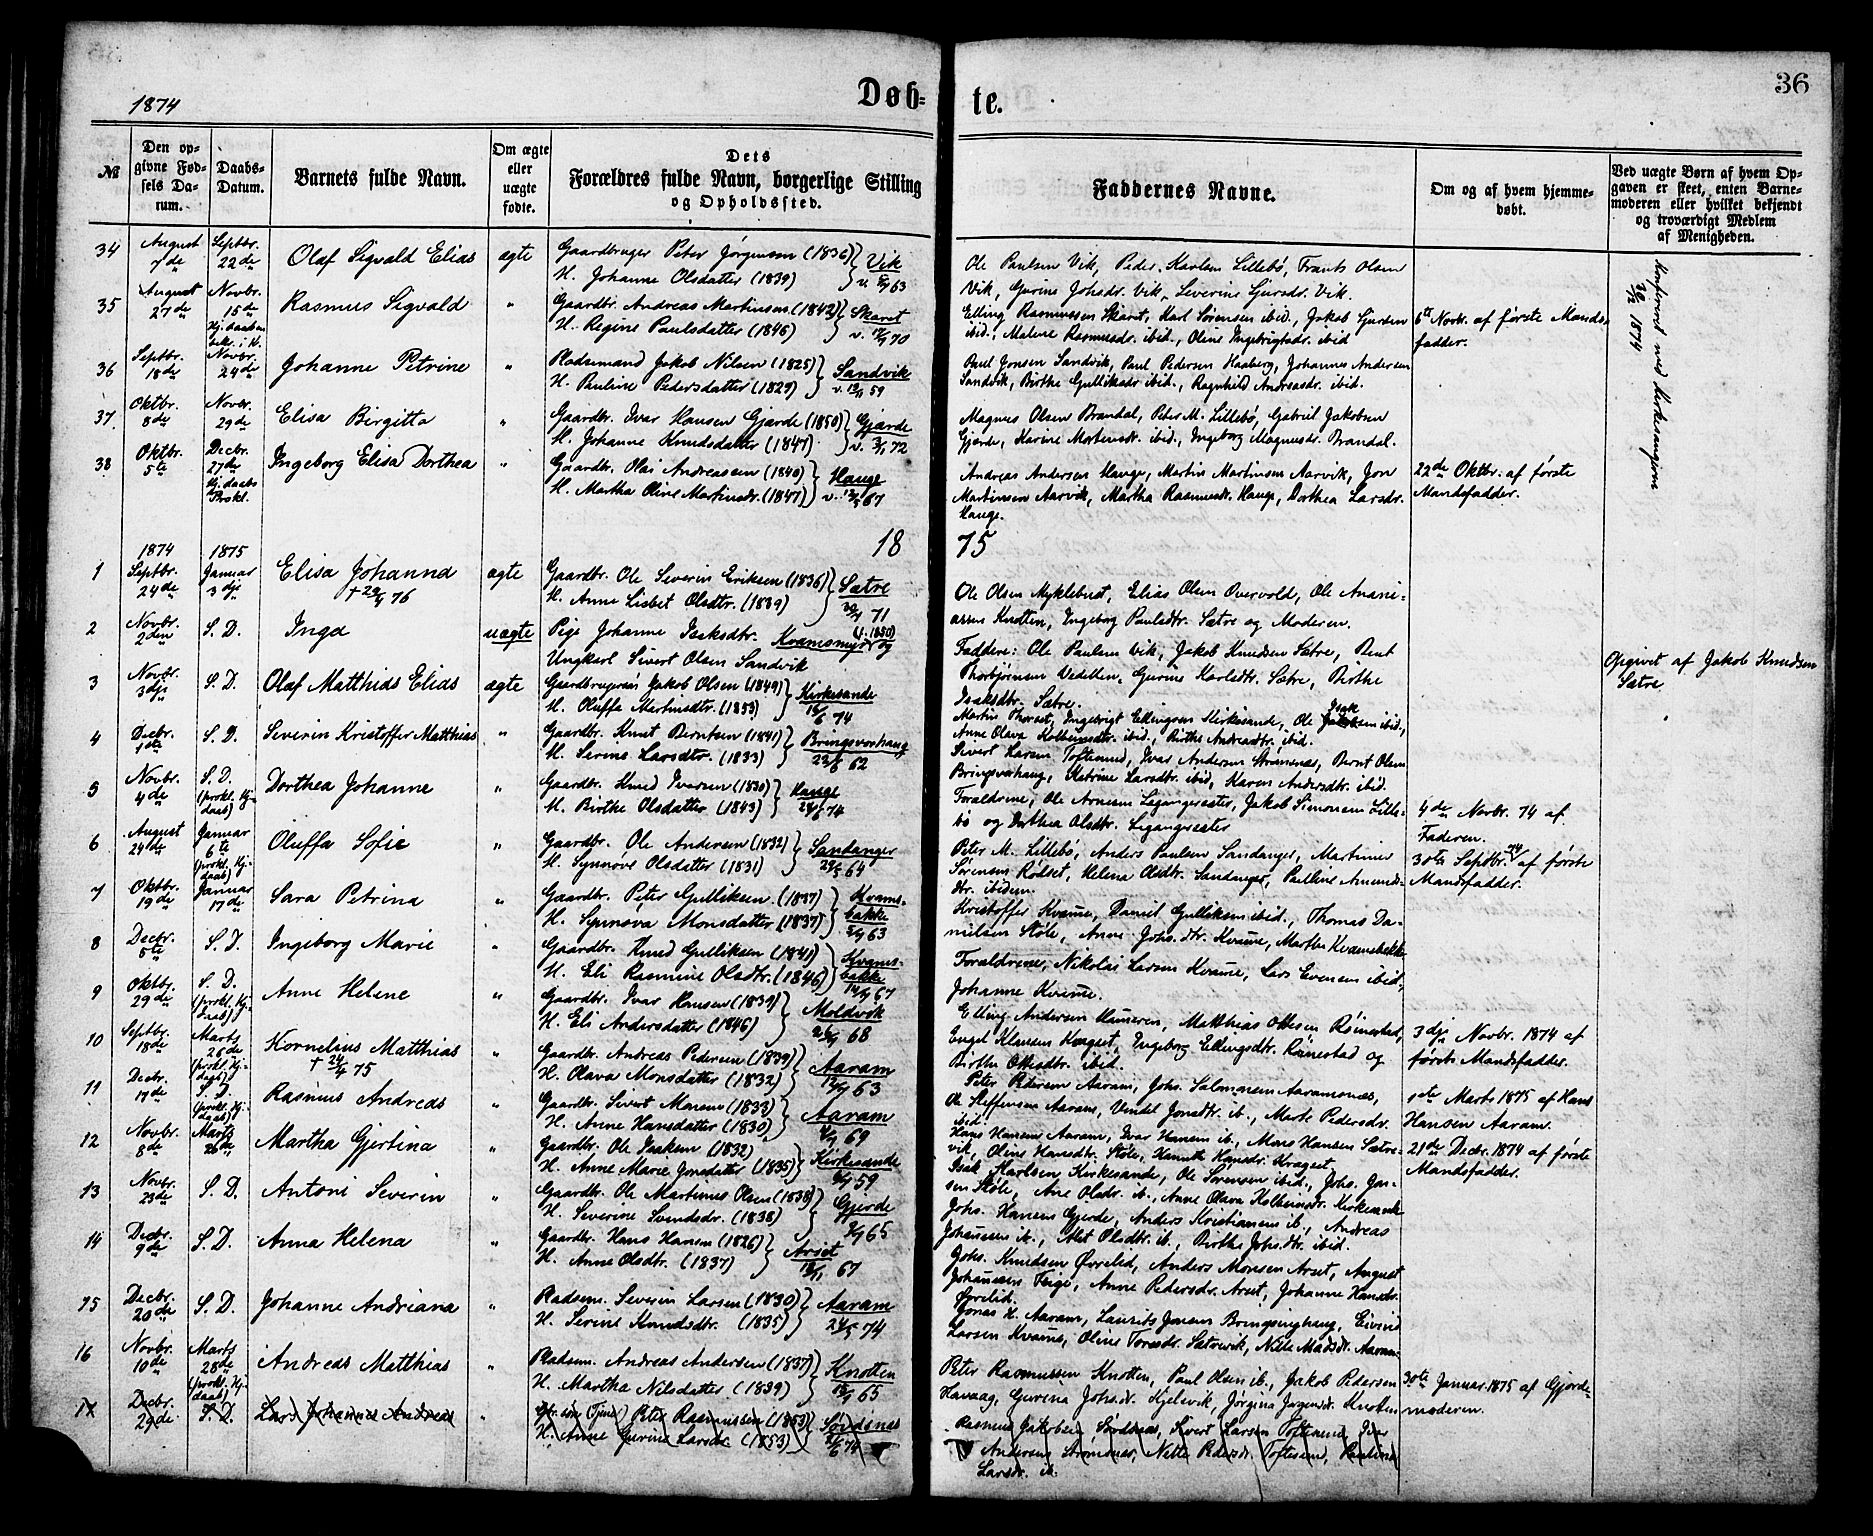 36
1874
Døb-
te.
№
Den op-
givne Fød-
sels Da-
tum.
Daabs-
Datum.
Barnets fulde Navn.
Om ægte
eller
uægte
fødte.
Dets
Forældres fulde Navn, borgerlige Stilling
og Opholdssted.
Faddernes Navne.
Om og af hvem hjemme-
døbt.
Ved uægte Børn af hvem Op-
gaven er skeet, enten Barne-
moderen eller hvilket bekjendt
og troværdigt Medlem
af Menigheden.
34 August 7de Septbr. 22de Olaf Sigvald Elias ægte
Gaardbruger Peter Jørgensen (1836)
H. Johanne Olsdatter (1839) Vik
Ole Paulsen Vik, Peder Karlsen Lillebø, Frants Olsen
Vik, Gurine Johsdr. Vik, Severine Gjursdr. Vik.
35 August 27de Novbr. 15de Rasmus Sigvald "
Gaardbr. Andreas Martinsen (1842)
H. Regine Paulsdatter (1846) Skaret
Elling Rasmussen Skaret, Karl Sørensen ibid., Jakob Gjursen
ibid., Malene Rasmusdr. ibid., Oline Ingebrigtsdr. ibid
6te Novbr. af første Mands-
fadder.
36 Septbr. 18de Novbr. 24de Johanne Petrine "
Pladsemand Jakob Nilsen (1825)
H. Pauline Pedersdatter (1829) Sandvik
Paul Jonsen Sandvik, Paul Pedersen Haaberg, Johannes Andersen
Sandvik, Birthe Gulliksdr ibid., Ragnhild Andreasdr. ibid.
37 Oktbr. 8de Novbr. 29de Elisa Birgitta "
Gaardbr. Ivar Hansen Gjærde (1850)
H. Johanne Knudsdatter (1847) Gjærde
Magnus Olsen Brandal, Peter M. Lillebø, Gabriel Jakobsen
Gjerde, Karine Mortensdr. ibid., Ingeborg Magnusdr. Brandal.
38 Oktbr. 5te Decbr. 27de Ingeborg Elisa Dorthea "
Gaardbr. Olai Andreassen (1840)
H. Martha Oline Martinsdr. (1847) Hauge
Andreas Andersen Hauge, Martin Martinsen Aarvik, Jon
Martinsen Aarvik, Martha Rasmusdr. Hauge, Dorthea Larsdr.
Hauge.
22de Oktbr. af første
Mandsfadder.
Konfereret med Kirkesangeren
1874
18 75
1874 1875
1 Septbr. 24de Januar 3dje Elisa Johanna ægte
Gaardbr. Ole Severin Eriksen (1836)
H. Anne Lisbet Olsdtr. (1839) Sætre
Ole Olsen Myklebust, Elias Olsen Overvold, Ole Anani-
assen Knotten, Ingeborg Paulsdtr. Sætre og Moderen.
2 Novbr. 2den S. D. Inga uægte
Pige Johanne Isaksdtr. Kvamsmyr (f. 1850) og
Ungkarl Sivert Olsen Sandvik
Faddere: Ole Paulsen Vik, Jakob Knudsen Sætre, Bent
Thorbjørnsen Vedelden, Gurine Karlsdtr. Sætre, Birthe
Isaksdtr. Sætre.
Opgivet af Jakob Knudsen
Sætre
3 Novbr. 3dje S. D. Olaf Matthias Elias ægte
Jakob Olsen (1849)
H. Oluffa Martinsdtr. (1853) Kirkesande
Martin Thorset, Ingebrigt Ellingsen Kirkesande, Ole Isaksen ibid.,
Anne Olava Kolbeinsdtr. ibid., Birthe Andreasdtr. ibid.
4 Decbr. 1ste S. D. Severin Kristoffer Matthias "
Gaardbr. Knut Berntsen (1841)
H. Serine Larsdtr. (1833) Bringsvorhaug
Sivert Larsen Toftesund, Ivar Andersen Strømsnæs, Bernt Olsen
Bringsvorhaug, Katrine Larsdtr. ibid, Karen Andersdtr. ibid.
5 Novbr. 4de S. D. Dorthea Johanne "
Gaardbr. Knud Ivarsen (1830)
H. Birthe Olsdatter (1843) Hauge
Forældrene, Ole Arnesen Legangersæter, Jakob Simonsen Lille-
bø og Dorthea Olsdtr. Legangersæter
4de Novbr. 74 af
Faderen.
6 August 24de Januar 6te Oluffa Sofie "
Gaardbr. Ole Andersen (1832)
H. Synnøve Olsdatter (1831) Sandanger
Peter M. Lillebø, Anders Paulsen Sandanger, Martinus
Sørensen Rødset, Helena Olsdtr. Sandanger, Pauline Amunds-
dtr. ibidem.
30te Septbr. af første
Mandsfadder.
7 Oktbr. 19de Januar 17de Sara Petrina "
Gaardbr. Peter Gulliksen (1837)
H. Synnøva Monsdatter (1837) Kvams-
bakke
Kristoffer Kvame, Daniel Gulliksen ibid., Thomas Da-
nielsen Støle, Anne Johs.dtr. Kvame, Marthe Kvamsbakke
8 Decbr. 5te S. D. Ingeborg Marie "
Gaardbr. Knud Gulliksen (1841)
H. Eli Rasmine Olsdtr. (1846) Kvams-
bakke
Forældrene, Nikolai Larsen Kvame, Lars Evensen ibid.,
Johanne Kvame.
9 Oktbr. 29de S. D. Anne Helene "
Gaardbr. Ivar Hansen (1839)
H. Eli Andersdatter (1846) Moldvik
Elling Andersen Hameren, Matthias Ottesen Rønestad,
Engel Klausen Kragset, Ingeborg Ellingsdtr. Rønestad og
Birthe Ottesdtr. ibid.
3dje Novbr. 1874 af
første Mandsfadder.
10 Septbr. 18de Marts 26de Kornelius Matthias "
Gaardbr. Andreas Pedersen (1839)
H. Olava Monsdatter (1832) Aaram
Peter Pedersen Aaram, Johs. Salmonsen Aaramsnæs,
Ole Steffensen Aaram, Vindel Jonsdtr. ib., Marte Pedersdr.
ibid.
1ste Marts 1875 af Hans
Hansen Aaram.
11 Decbr. 17de S. D. Rasmus Andreas "
Gaardbr. Sivert Monsen (1833)
H. Anne Hansdatter (1830) Aaram
Hans Hansen Aaram, Ivar Hansen ib., Mons Hansen Sætre-
vik, Oline Hansdtr. Støle, Hansdr. Kragset.
21de Decbr. 1874 af første
Mandsfadder.
12 Novbr. 8de Marts 26de Martha Gjertina "
Gaardbr. Ole Isaksen (1832)
H. Anne Marie Jonsdatter (1835) Kirkesande
Isak Karlsen Kirkesande, Ole Sørensen ibid., Johs. Jon-
sen Støle, Ane Olsdr. ib., Anne Olava Kolbeinsdr. Kirkesande
13 Novbr. 23de S. D. Antoni Severin "
Gaardbr. Ole Martinus Olsen (1838)
H. Severine Svendsdr. (1838) Gjerde
Johs. Hansen Gjerde, Anders Kristiansen ib., Andreas
Johansen ib., Alet Olsdtr. ib., Birthe Johs.dtr. ibid.
14 Decbr. 9de S. D. Anna Helena "
Gaardbr. Hans Hansen (1826)
H. Anne Olsdtr. (1837) Arset
Johs. Knudsen Øvrelid, Anders Monsen Arset, August
Johansen Feige, Anne Pedersdr. Arset, Johanne Hansdr.
Øvrelid.
15 Decbr. 20de S. D. Johanne Andriana "
Pladsem. Severin Larsen (1830)
H. Serine Knudsdtr. (1835) Aaram
Jonas H. Aaram, Laurits Jonsen Bringsinghaug, Eivind
Larsen Kvame, Oline Toresdr. Sætrevik, Nille Madsdr. Aaram.
16 Novbr. 10de Marts 28de Andreas Matthias "
Pladsm. Andreas Andersen (1837)
H. Martha Nilsdatter (1839) Knotten
Peter Rasmussen Knotten, Paul Olsen ib., Jakob Pedersen
Havaag, Gurina Johs.dr. Kjelsvik, Jørgina Jørgensdr. Knotten
30te Januar 1875 af Gjorde-
moderen.
17 Decbr. 29de S. D. Lars Johannes Andreas "
Peter Rasmussen (1853)
H. Anne Gurine Larsdr (1853) Sørdsnæs
Rasmus Jakobsen Sørdsnæs, Sivert Larsen Toftesund, Ivar
Andersen Strømsnæs, Nette Pedersdr. Toftesund, Paulina
Larsdr. ib.